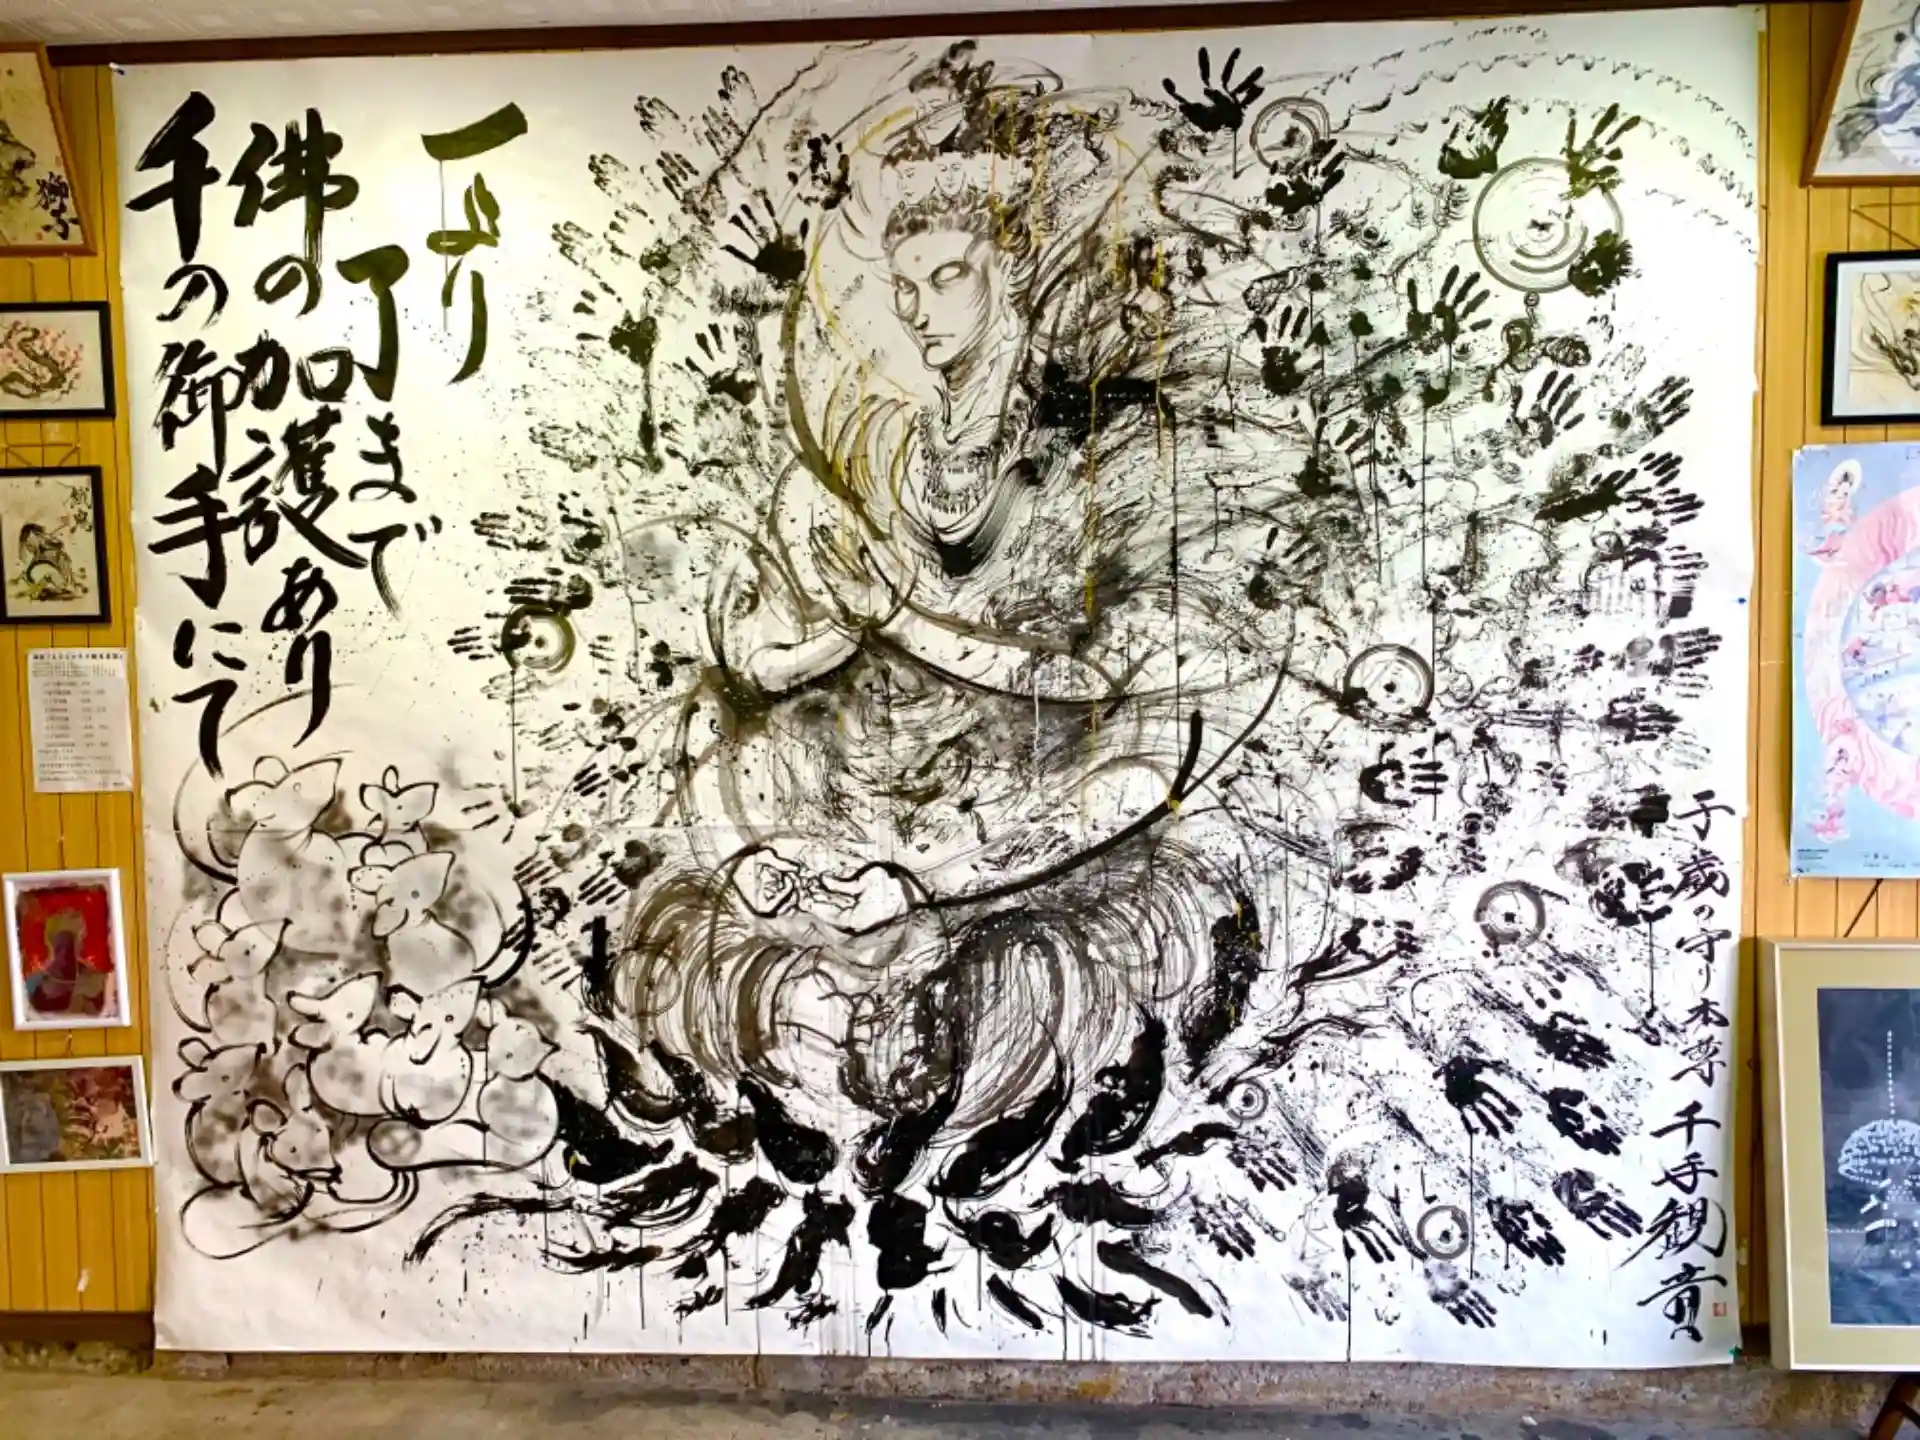 一より
了まで
佛の加護あり
千の御手にて
子歳の守り本尊 千手観音